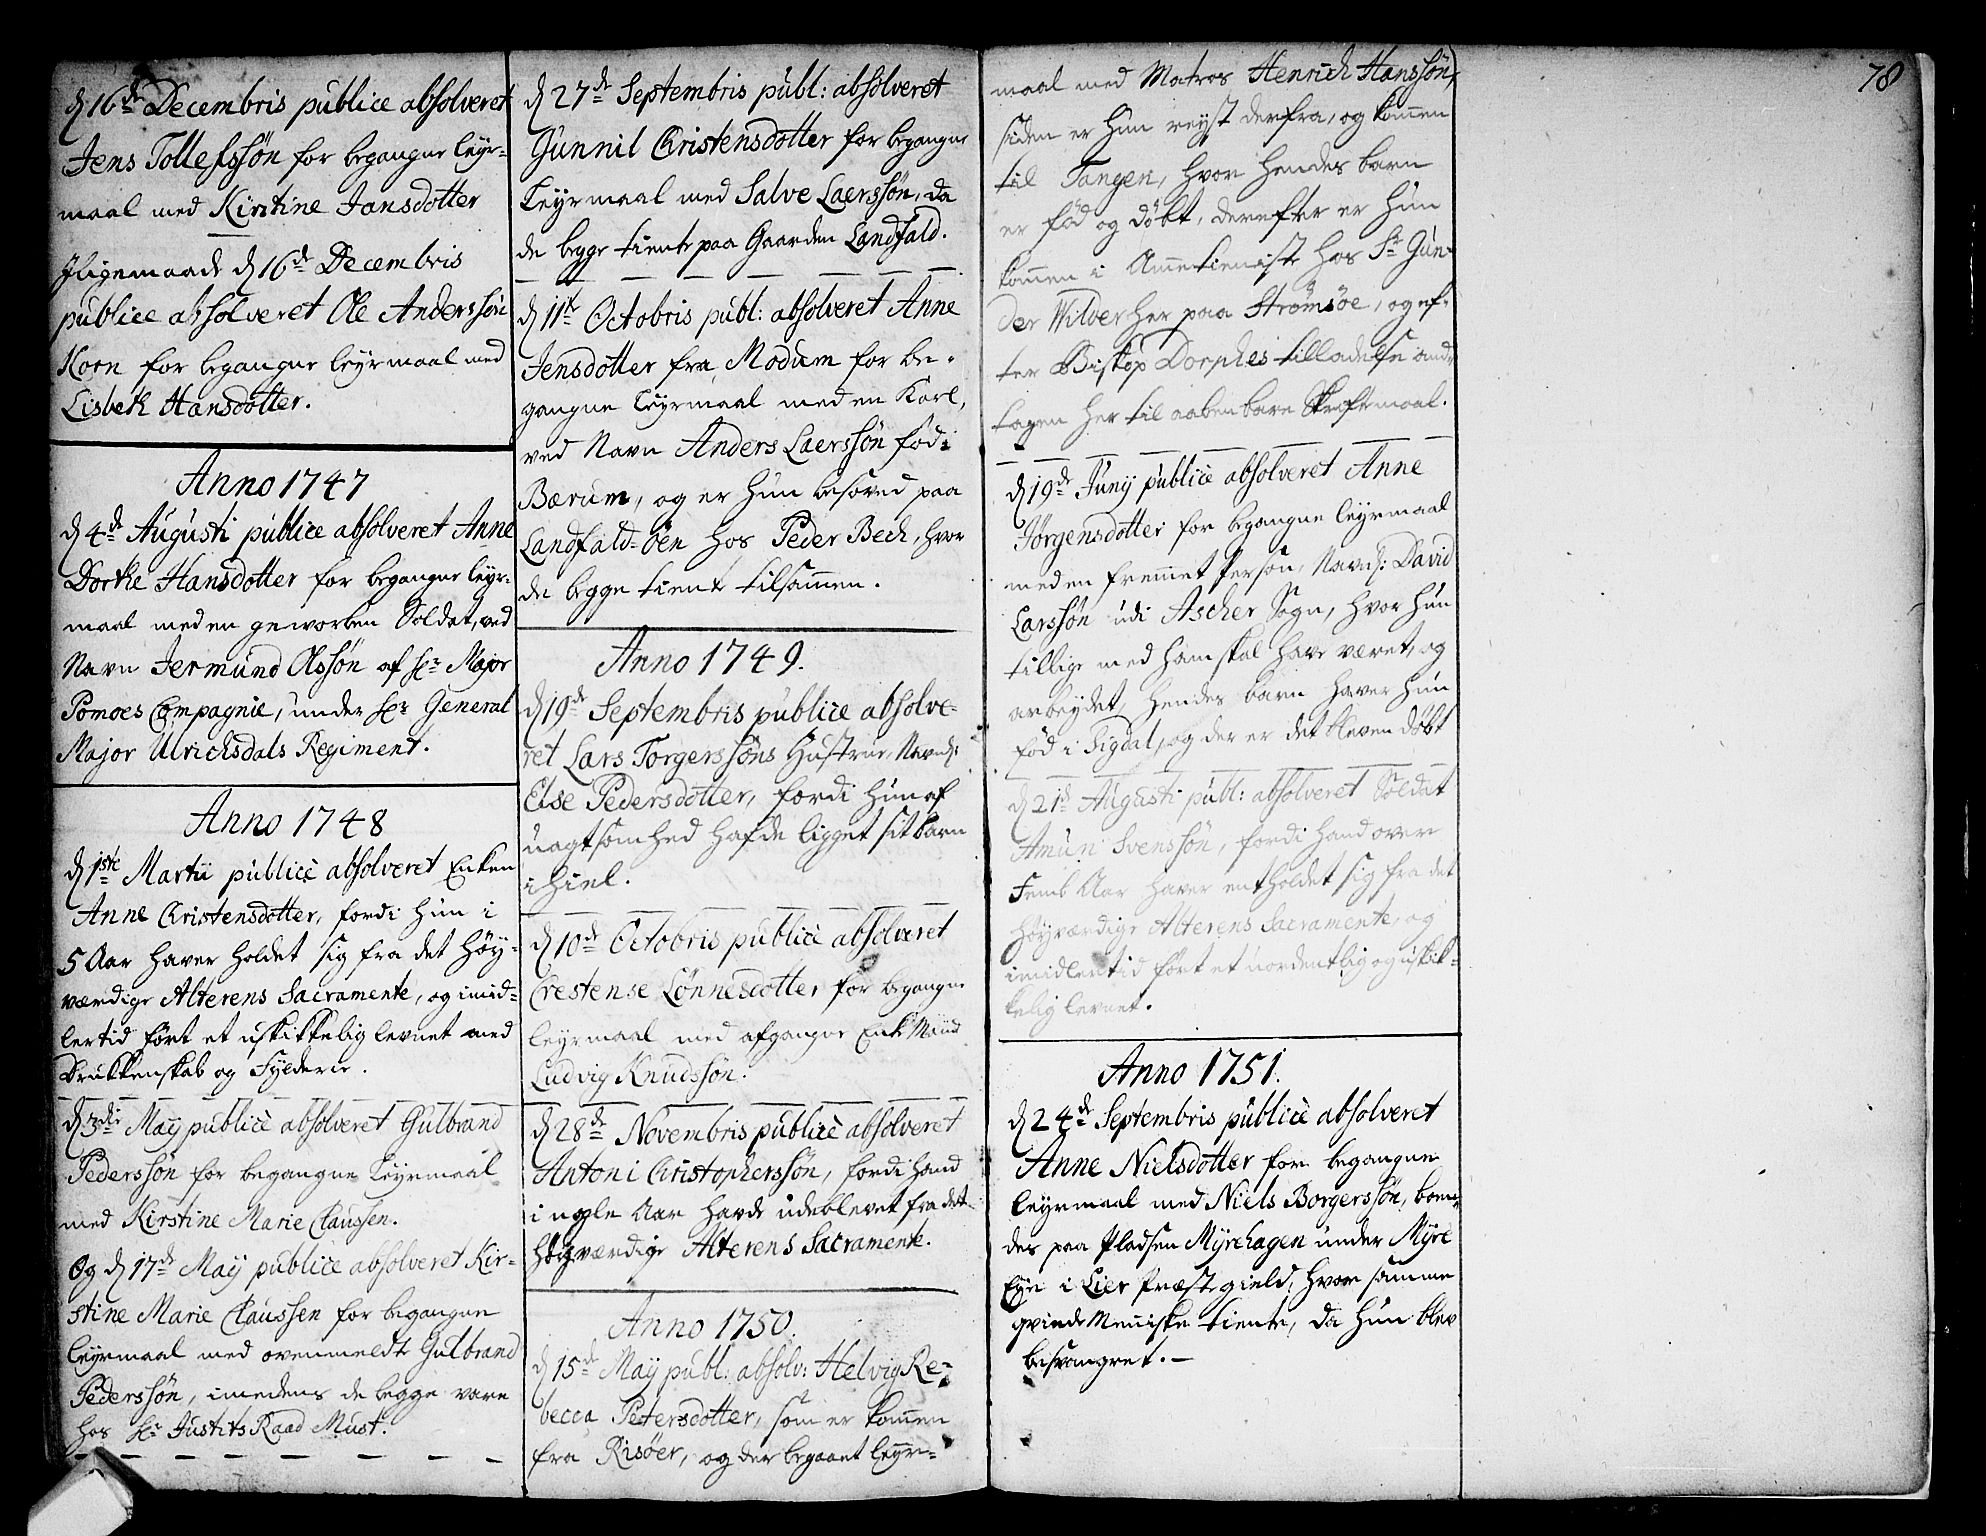 d. 16de Decembris publice absolveret
Jens Tollefssøn for begangne Leyr-
maal med Kirstine Jansdotter
Jligemaade d. 16de Decembris
publice absolveret Ole Anderssøn
Korn for begangne Leyrmaal med
Lisbeth Hansdotter.
Anno 1747
d. 4de Augusti publice absolveret Anne
Dorthe Hansdotter for begangne Leyr-
maal med en geworben Soldat, ved
Navn Jermund Olssøn af hr. Major
Pomoes Compagnie, under hr. General
Major Ulrichsdals Regiment.
Anno 1748
d. 1ste Martii publice absolveret Enken
Anne Christensdotter, fordi hun i
5 Aar haver holdet sig fra det høy-
værdige Alterens Sacramente, og imid-
lertid ført et uskikkelig levnet med
Drukkenskab og Fylderie.
d. 3die Maij publice absolveret Gulbrand
Pederssøn for begangne Leyrmaal
med Kirstine Marie Claussen.
Og d. 17de Maij publice absolveret Kir-
stine Marie Claussen for begangne
Leyrmaal med ovenmeldte Gulbrand
Pederssøn, imedens de begge vare
hos hr. Justits Raad Must.
d. 27de Septembris publ: absolveret
Gunnil Christensdotter for begangne
Leyrmaal med Salve Laerssøn, da
de begge tiente paa Gaarden Landfald.
d. 11te Octobris publ: absolveret Anne
Jensdotter fra Modum for be-
gangne Leyrmaal med en Karl,
ved Navn Anders Laerssøn fød i
Bærum, og er hun besoved paa
Landfald-øen hos Peder Bech, hvor
de begge tiente tilsammen.
Anno 1749.
d. 19de Septembris publice absolve-
ret Lars Torgerssøns Hustrue, Navnl:
Else Pedersdotter, fordi hun af
uagtsomhed hafde ligget sit barn
ihiel.
d. 10de Octobris publice absolveret
Crestense Lønnesdotter for begangne
Leyrmaal med afgangne Enke Mand
Ludvig Knudssøn.
d. 28de Novembris publice absolveret
Antoni Christopherssøn, fordi hand
i nogle Aar havde udeblevet fra det
høyværdige Alterens Sacramente.
Anno 1750.
d. 15de Maij publ: absolv: Helvig Re-
becca Petersdotter, som er kommen
fra Risøer, og der begaaet Leyr-
maal med Matros Henrich Hanssøn,
siden er hun reyst derfra, og kommen
til Tangen, hvor hendes barn
er fød og døbt, derefter er hun
kommen i Ammetieniste hos Sr. Gun-
der Wilver her paa Strømsøe, og ef-
ter Biskop Dorphes tilladelse and-
tagen her til aabenbare Skriftemaal.
d. 19de Junij publice absolveret Anne
Jørgensdotter for begangne Leyrmaal
med en fremmet Person, Navnl: David
Larssøn udi Ascher Sogn, hvor hun
tillige med ham skal have været, og
arbeydet, hendes barn haver hun
fød i Sigdal, og der er det bleven døbt
d. 21de Augusti publ: absolveret Soldat
Amun Svenssøn, fordi hand over
Femb Aar haver entholdet sig fra det
høyværdige Alterens Sacramente, og
imidlertid ført et uordentlig og uskik-
kelig levnet.
Anno 1751.
d. 24de Septembris publice absolveret
Anne Nielsdotter for begangne
Leyrmaal med Niels Borgerssøn, boen-
des paa Pladsen Myrehagen under Myre
Eye i Lier Præstegield, hvor samme
qvinde Menniske tiente, da hun blev
besvangret. —
78